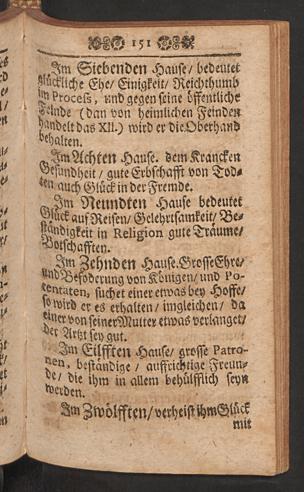 151
Im Siebenden Hause/ bedeutet
glückliche Ehe/ Einigkeit/ Reichthumb
im Process, und gegen seine öffentliche
Feinde (dan von heimlichen Feinden
handelt das XII.) wird er die Oberhand
behalten.
Im Achten Hause. dem Krancken
Gesundheit/ gute Erbschafft von Tod-
ten auch Glück in der Fremde.
Im Neundten Hause bedeutet
Glück auf Reisen/ Gelehrtsamkeit/ Be-
ständigkeit in Religion gute Träume/
Botschafften.
Im Zehnden Hause. Grosse Ehre/
und Befoderung von Königen/ und Po-
tentaten, suchet einer etwas bey Hoffe/
so wird er es erhalten/ imgleichen/ da
einer von seiner Mutter etwas verlanget/
der Artzt sey gut.
Im Eilfften Hause/ grosse Patro-
nen, beständige/ auffrichtige Freun-
de/ die ihm in allem behülfflich seyn
werden.
Im Zwölfften/ verheist ihm Glück
mit